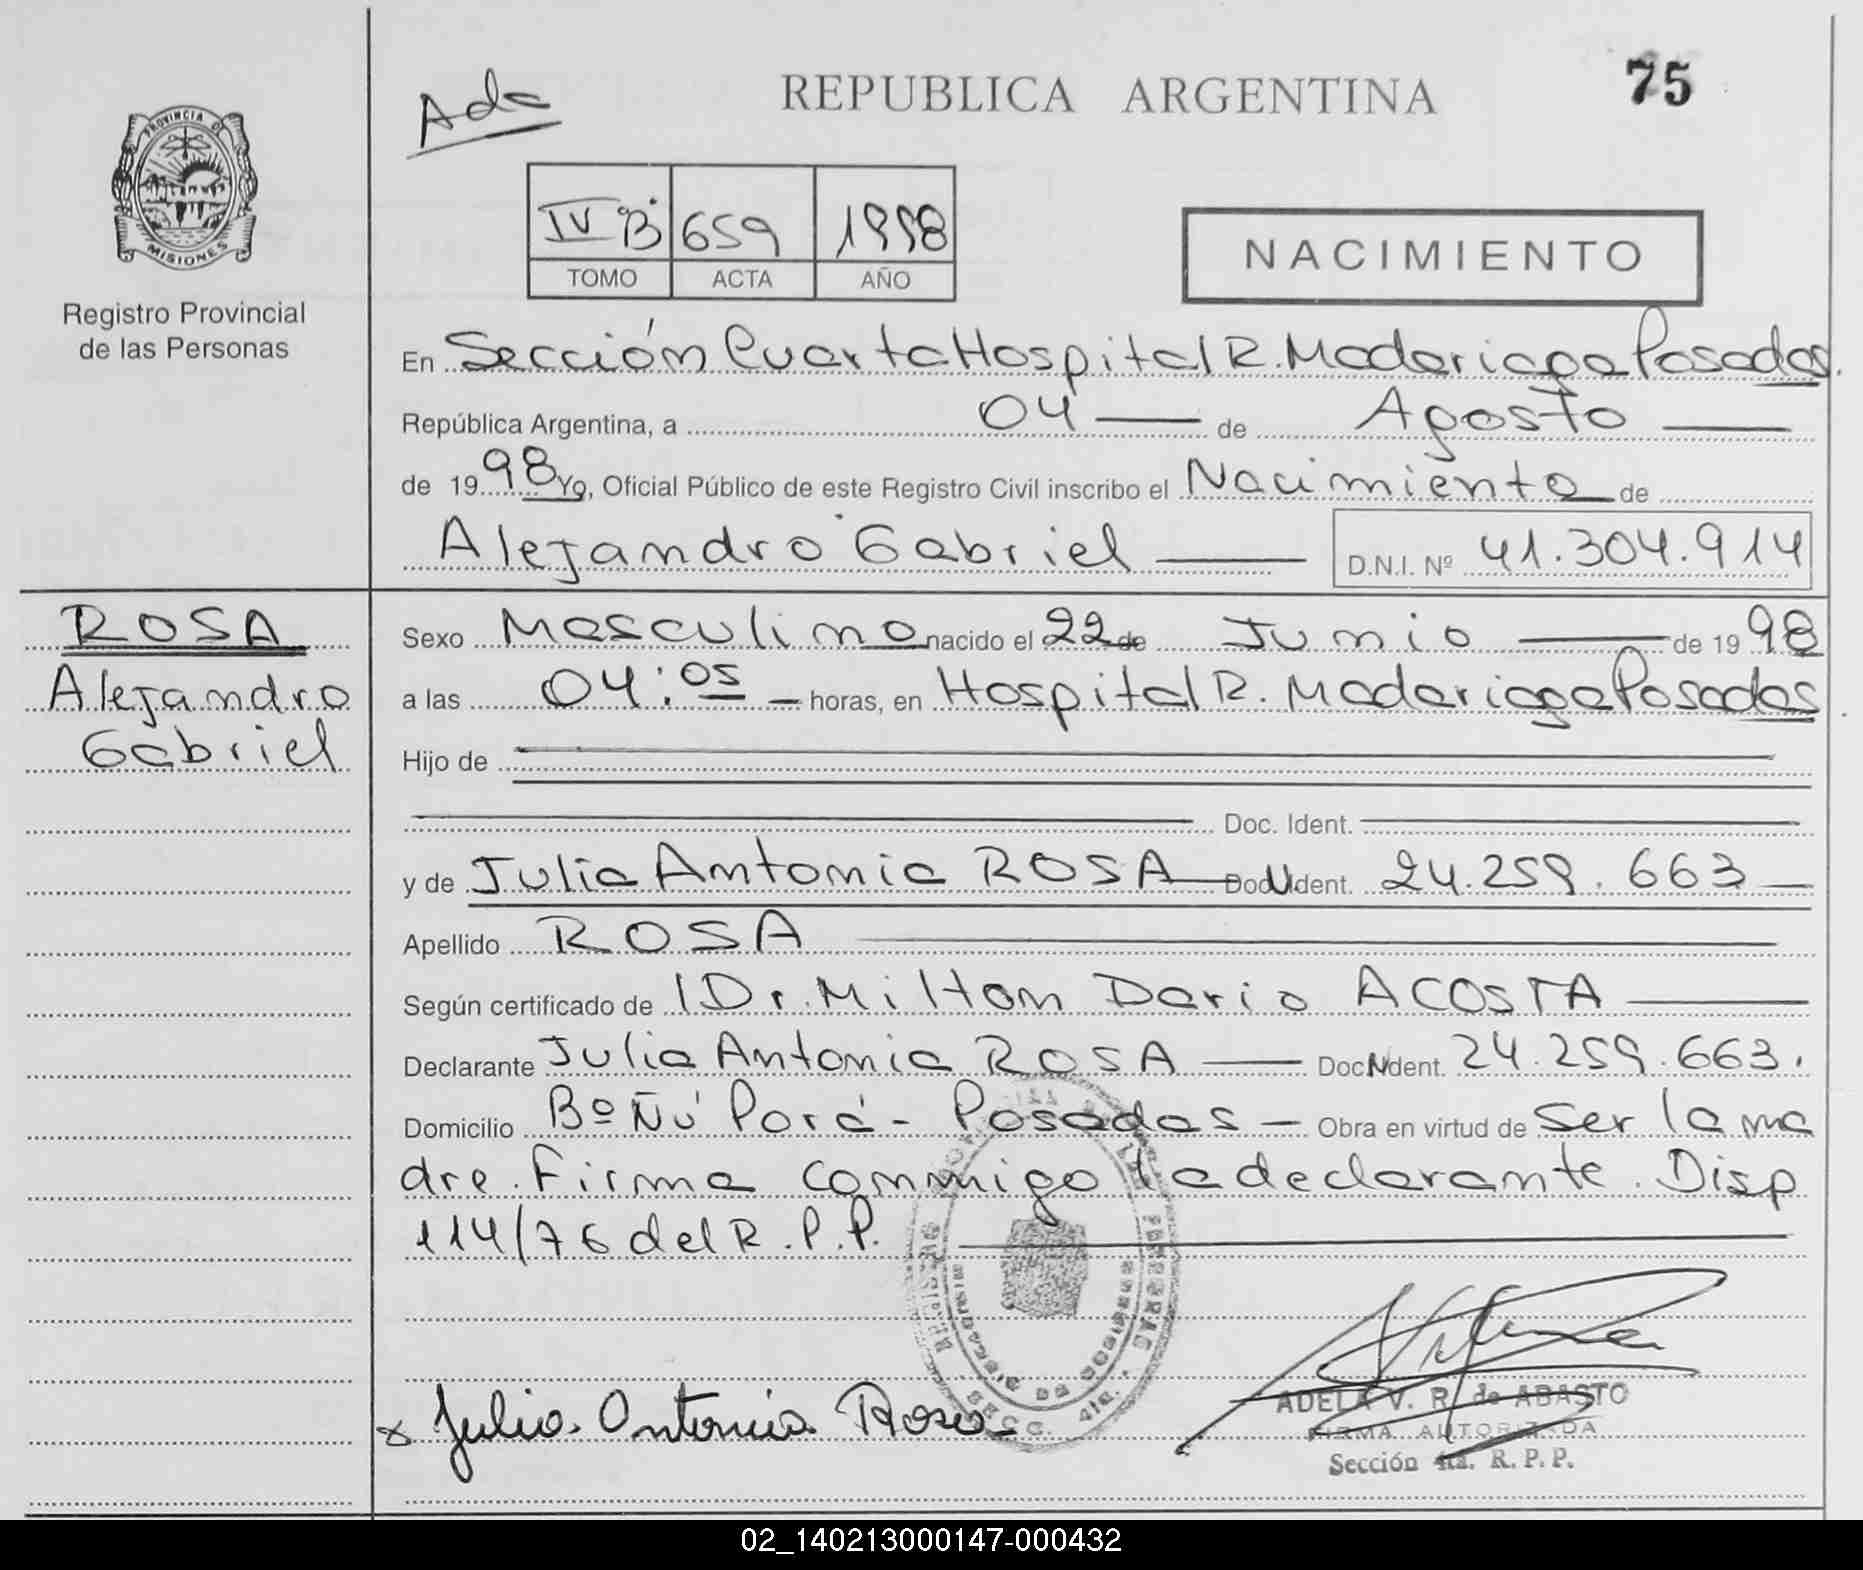 75
Ada
REPUBLICA ARGENTINA
PROVINCIA D
MISIONES
Registro Provincial
de las Personas
IV "B" 659 1998
TOMO ACTA AÑO
NACIMIENTO
En Sección Cuarta Hospital R. Madariaga Posadas.
República Argentina, a 04 de Agosto
de 19 98 Yo, Oficial Público de este Registro Civil inscribo el Nacimiento de
Alejandro Gabriel D.N.I. Nº 41.304.914
ROSA
Alejandro
Gabriel
Sexo Masculino nacido el 22 de Junio de 19 98
a las 04:05 horas, en Hospital R. Madariaga Posadas
Hijo de
Doc. Ident.
y de Julia Antonia ROSA Doc. Ident. 24.259.663
Apellido ROSA
Según certificado de l Dr. Milton Dario ACOSTA
Declarante Julia Antonia ROSA Doc. Ident. 24.259.663.
Domicilio Bº Ñú Porá - Posadas - Obra en virtud de Ser la ma
dre. Firma conmigo la declarante. Disp
114/76 del R.P.P.
SECC. 4ta.
x Julia Antonia Rosa
ADELA V. R. de ABASTO
FIRMA AUTORIZADA
Sección 4ta. R. P. P.
02_140213000147-000432